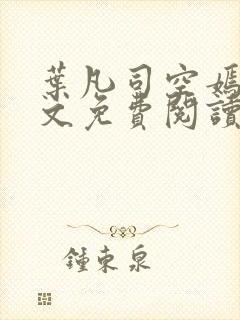 葉凡司空嫣
文免費閱讀
鍾東泉